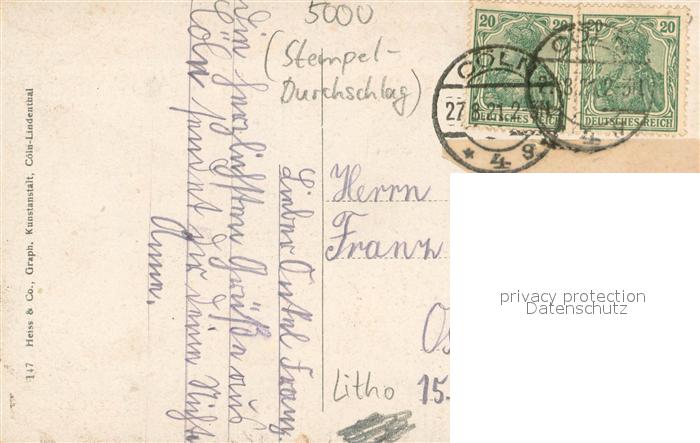 5000
(Stempel-
Durchschlag)
20 20
DEUTSCHES REICH
20 20
DEUTSCHES REICH
CÖLN
27.8.21.2-3N
* 4 g
Lieber Onkel Franz.
Die herzlichsten Grüße aus
Cöln sendet dir deine Nichte
Anna.
Herrn
Franz
Litho
15.
privacy protection
Datenschutz
147 Heiss & Co., Graph. Kunstanstalt, Cöln-Lindenthal